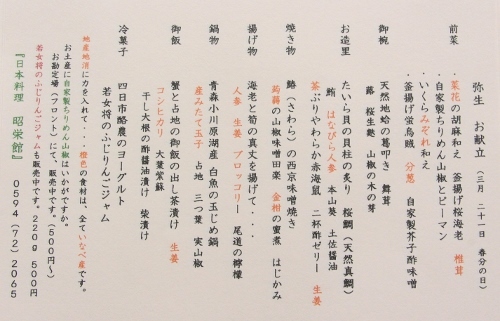 弥生 お献立 (三月 二十一日 春分の日)
前菜
・菜花の胡麻和え 釜揚げ桜海老 椎茸
・自家製ちりめん山椒とピーマン
・いくらみぞれ和え
・釜揚げ蛍烏賊 分葱 自家製芥子酢味噌
御椀
天然地蛤の葛叩き 舞茸
蕗 桜生麩 山椒の木の芽
お造里
たいら貝の貝柱の炙り 桜鯛(天然真鯛)
鮪 はなびら人参 本山葵 土佐醤油
茶ぶりやわらか赤海鼠 二杯酢ゼリー 生姜
焼き物
鰆(さわら)の西京味噌焼き
蒟蒻の山椒味噌田楽 金柑の蜜煮 はじかみ
揚げ物
海老と筍の真丈を揚げて・・・
人参 生姜 ブロッコリー 尾道の檸檬
鍋物
青森小川原湖産 白魚の玉じめ鍋
産みたて玉子 占地 三つ葉 実山椒
御飯
蟹と占地の御飯の出し茶漬け 生姜
コシヒカリ 大葉紫蘇
干し大根の酢醤油漬け 柴漬け
冷菓子
四日市酪農のヨーグルト
若女将のふじりんごジャム
地産地消に力を入れて・・ 橙色の食材は、全ていなべ産です。
お土産に自家製ちりめん山椒はいかがですか。
お勘定場(フロント)にて、販売中です。(500円～)
若女将のふじりんごジャムも販売中です。220g 500円
『日本料理 昭栄館』 0594(72)2065